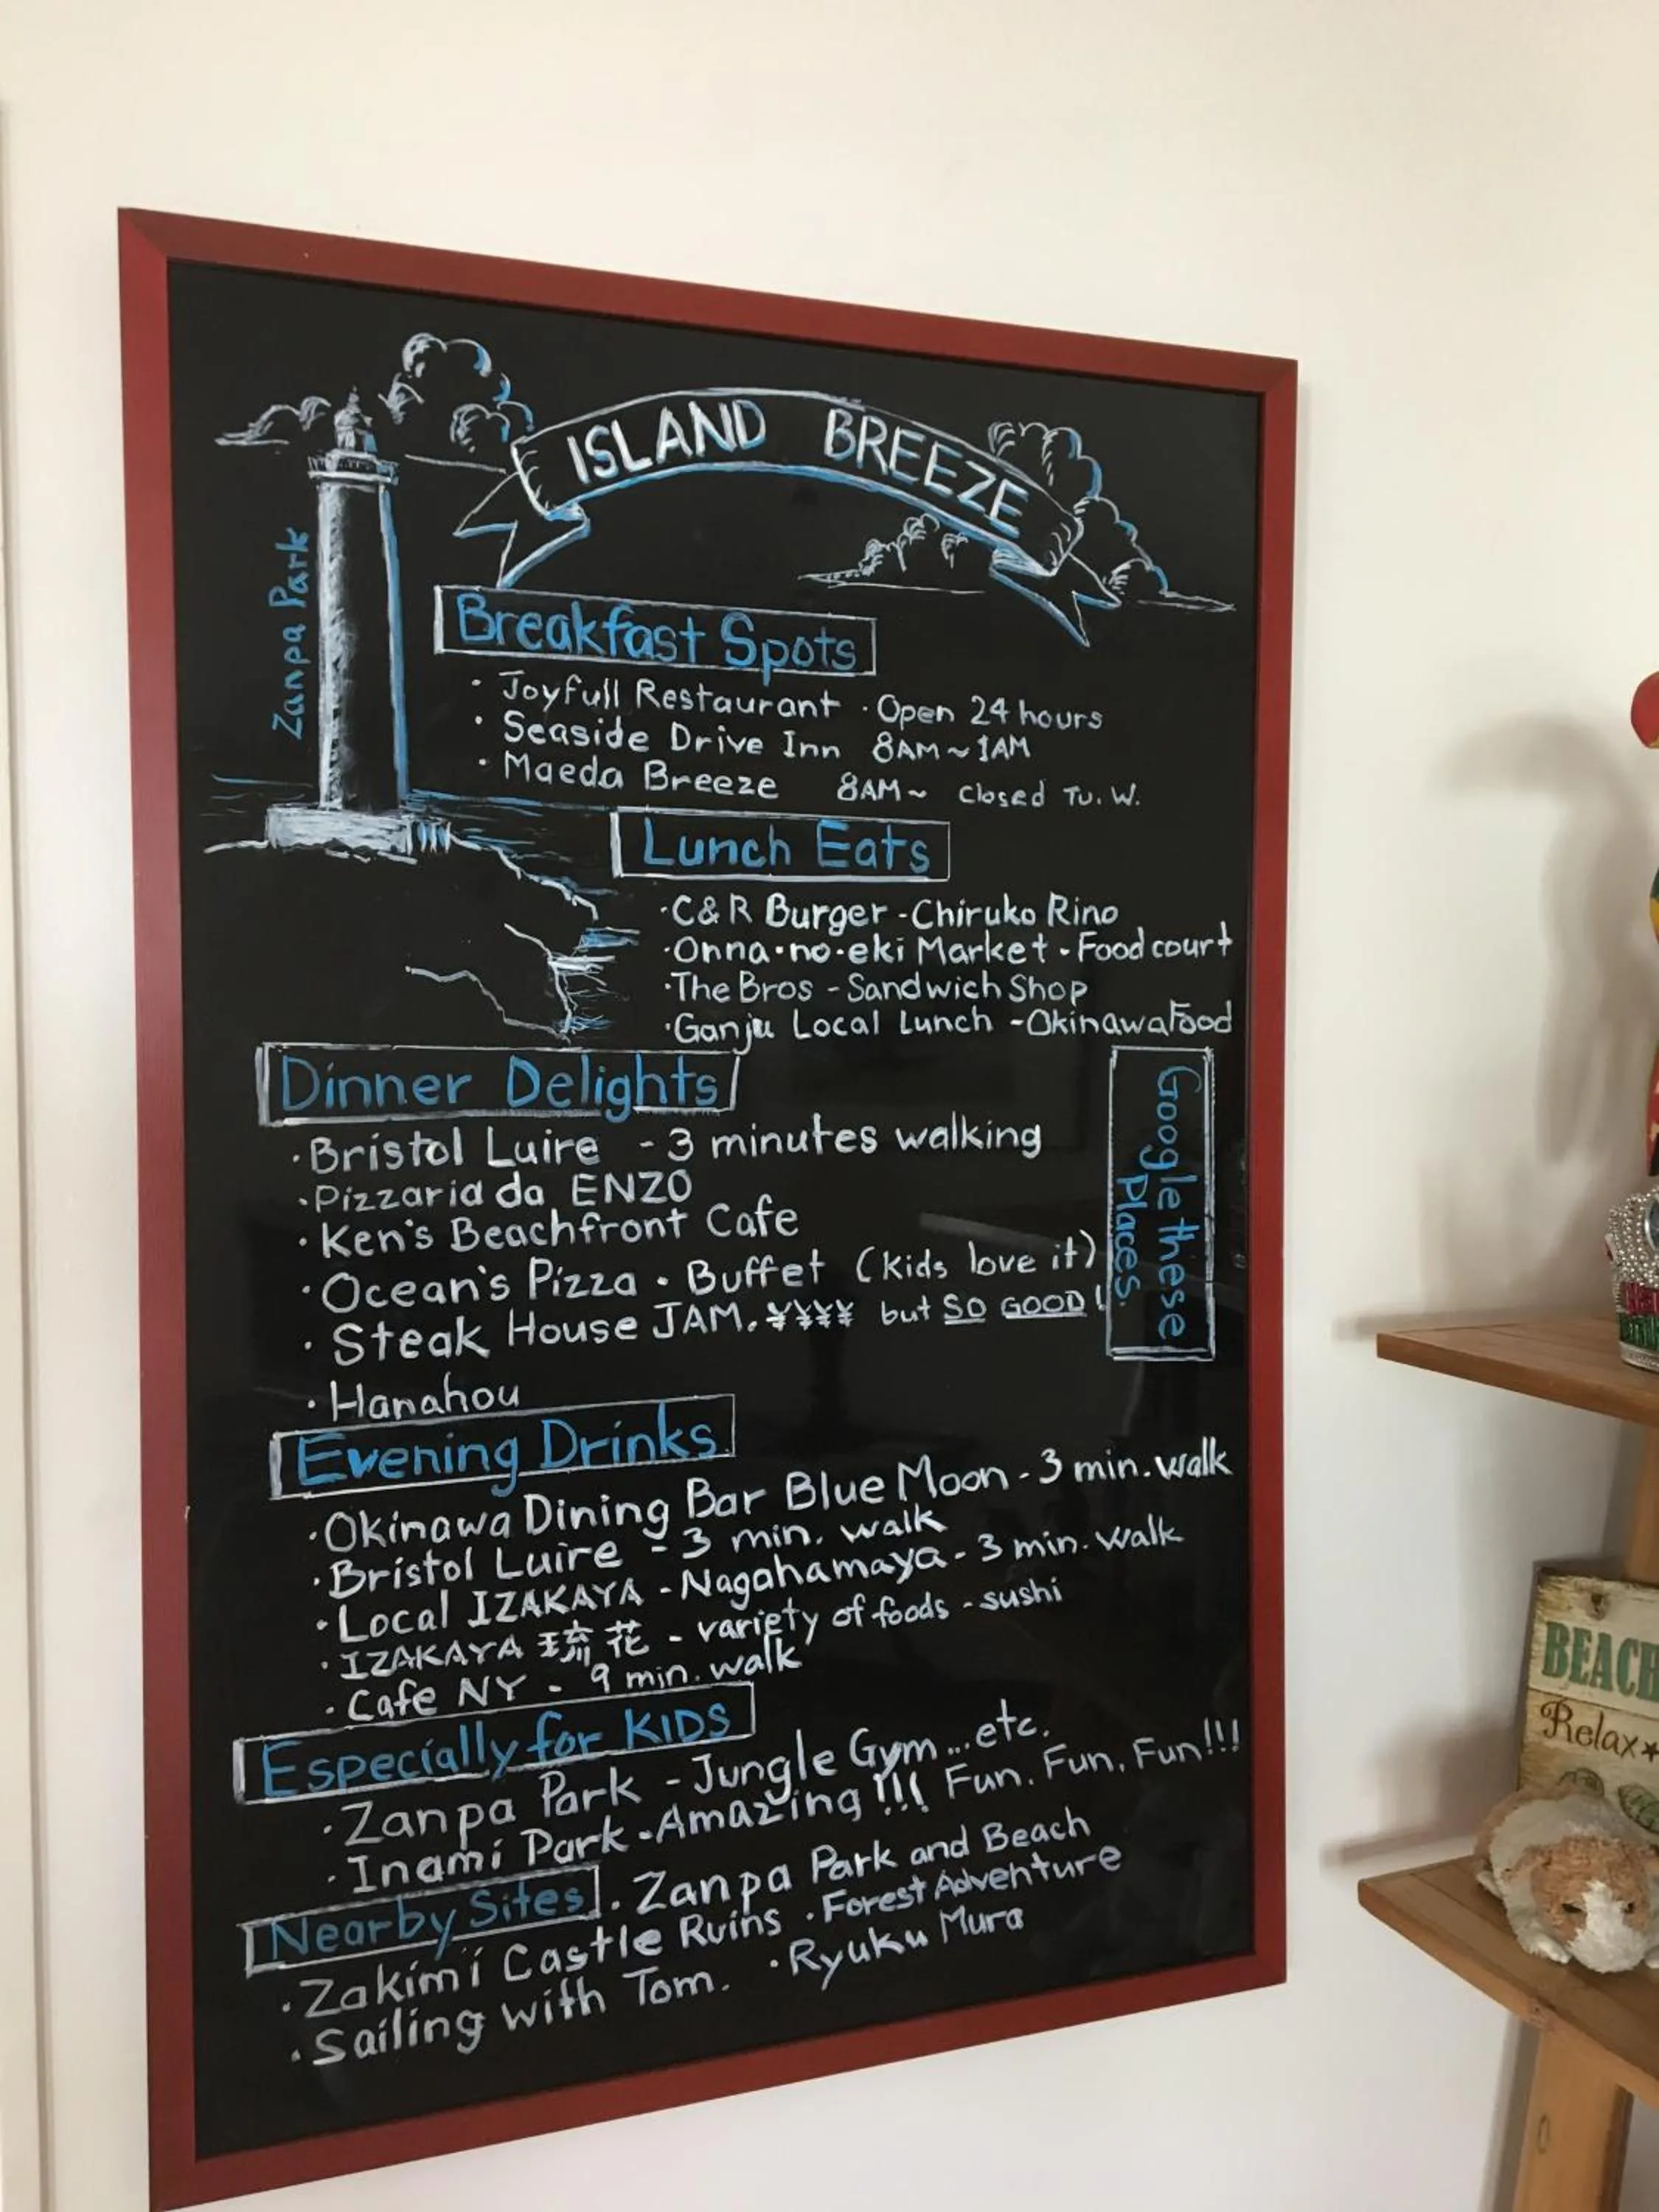 ISLAND BREEZE
Zanpa Park
Breakfast Spots
· Joyfull Restaurant · Open 24 hours
· Seaside Drive Inn 8AM~1AM
· Maeda Breeze 8AM~ closed Tu. W.
Lunch Eats
·C&R Burger -Chiruko Rino
·Onna·no·eki Market - Food court
·The Bros - Sandwich Shop
·Ganju Local Lunch -Okinawa Food
Google these
Places.
Dinner Delights
·Bristol Luire - 3 minutes walking
·Pizzaria da ENZO
·Ken's Beachfront Cafe
·Ocean's Pizza · Buffet (kids love it)
·Steak House JAM. ¥¥¥¥ but SO GOOD!
·Hanahou
Evening Drinks
·Okinawa Dining Bar Blue Moon - 3 min. walk
·Bristol Luire - 3 min. walk
·Local IZAKAYA - Nagahamaya - 3 min. walk
·IZAKAYA 琉花 - variety of foods - sushi
·Cafe NY - 9 min. walk
Especially for KIDS
·Zanpa Park - Jungle Gym...etc.
·Inami Park -Amazing!!! Fun. Fun. Fun!!!
Nearby Sites · Zanpa Park and Beach
·Zakimi Castle Ruins · Forest Adventure
·Sailing with Tom. · Ryuku Mura
BEACH
Relax